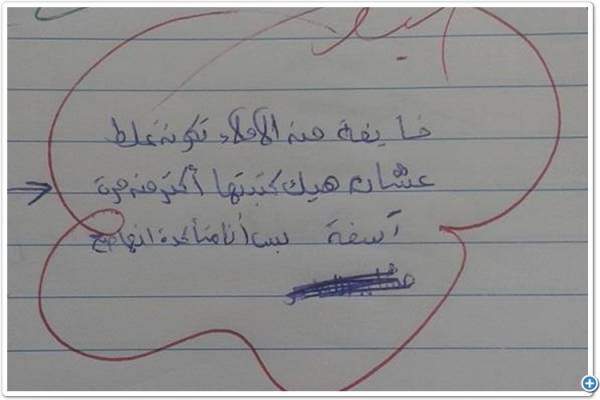 خايفة منه الأملاء تكونه غلط
عشانه هيك كتبتها أكتر منه مرة
آسفة بس أنا متأكدة انها صح